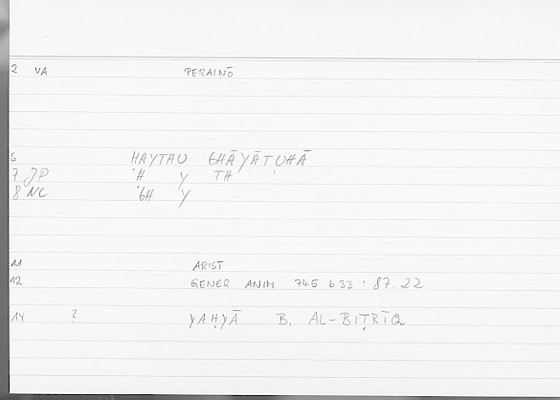 2 VA PERAINŌ
6 HAYTHU GHĀYĀTUHĀ
7 JP 'H Y TH
8 NC 'GH Y
11 ARIST
12 GENER ANIM 746 b 33 : 87.22
14 ? YAḤYĀ B. AL-BIṬRĪQ